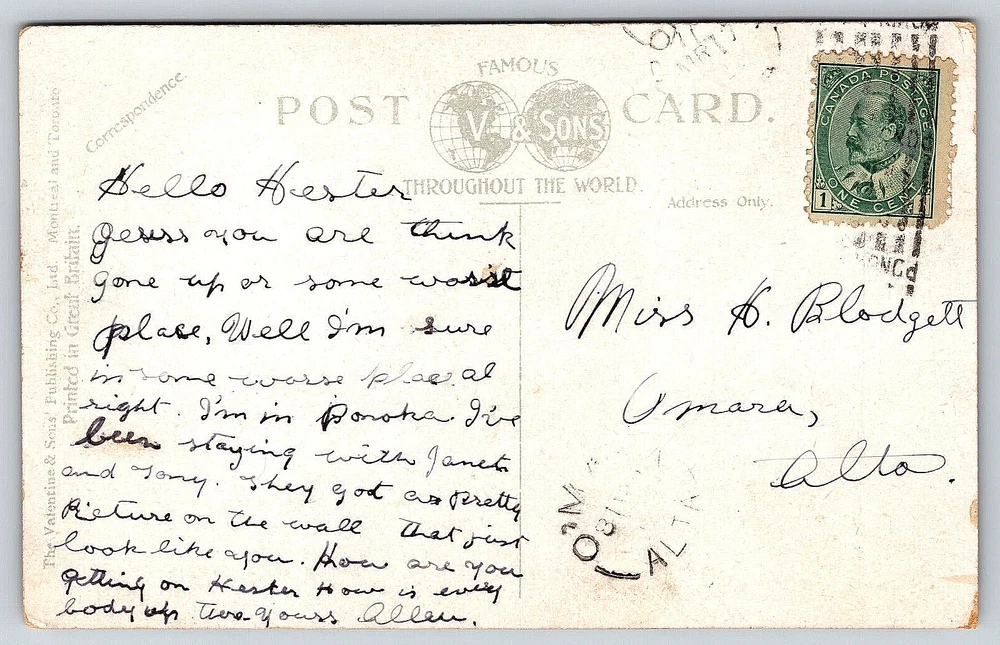 FAMOUS
POST CARD.
V. & SONS
THROUGHOUT THE WORLD.
Correspondence.
Address Only.
The Valentine & Sons Publishing Co., Ltd. Montreal and Toronto
Printed in Great Britain.
CANADA POSTAGE
1
ONE CENT
Hello Hester
Guess you are think
gone up or some worsst
place, Well I'm sure
in some worse place al
right. I'm in Ponoka I've
been staying with Janet
and Tony. They got a pretty
Picture on the wall that just
look like you. How are you
getting on Hester How is every
body up two- yours Allen.
Miss H. Blodgett
Omara,
Alta.
OM
ALTA